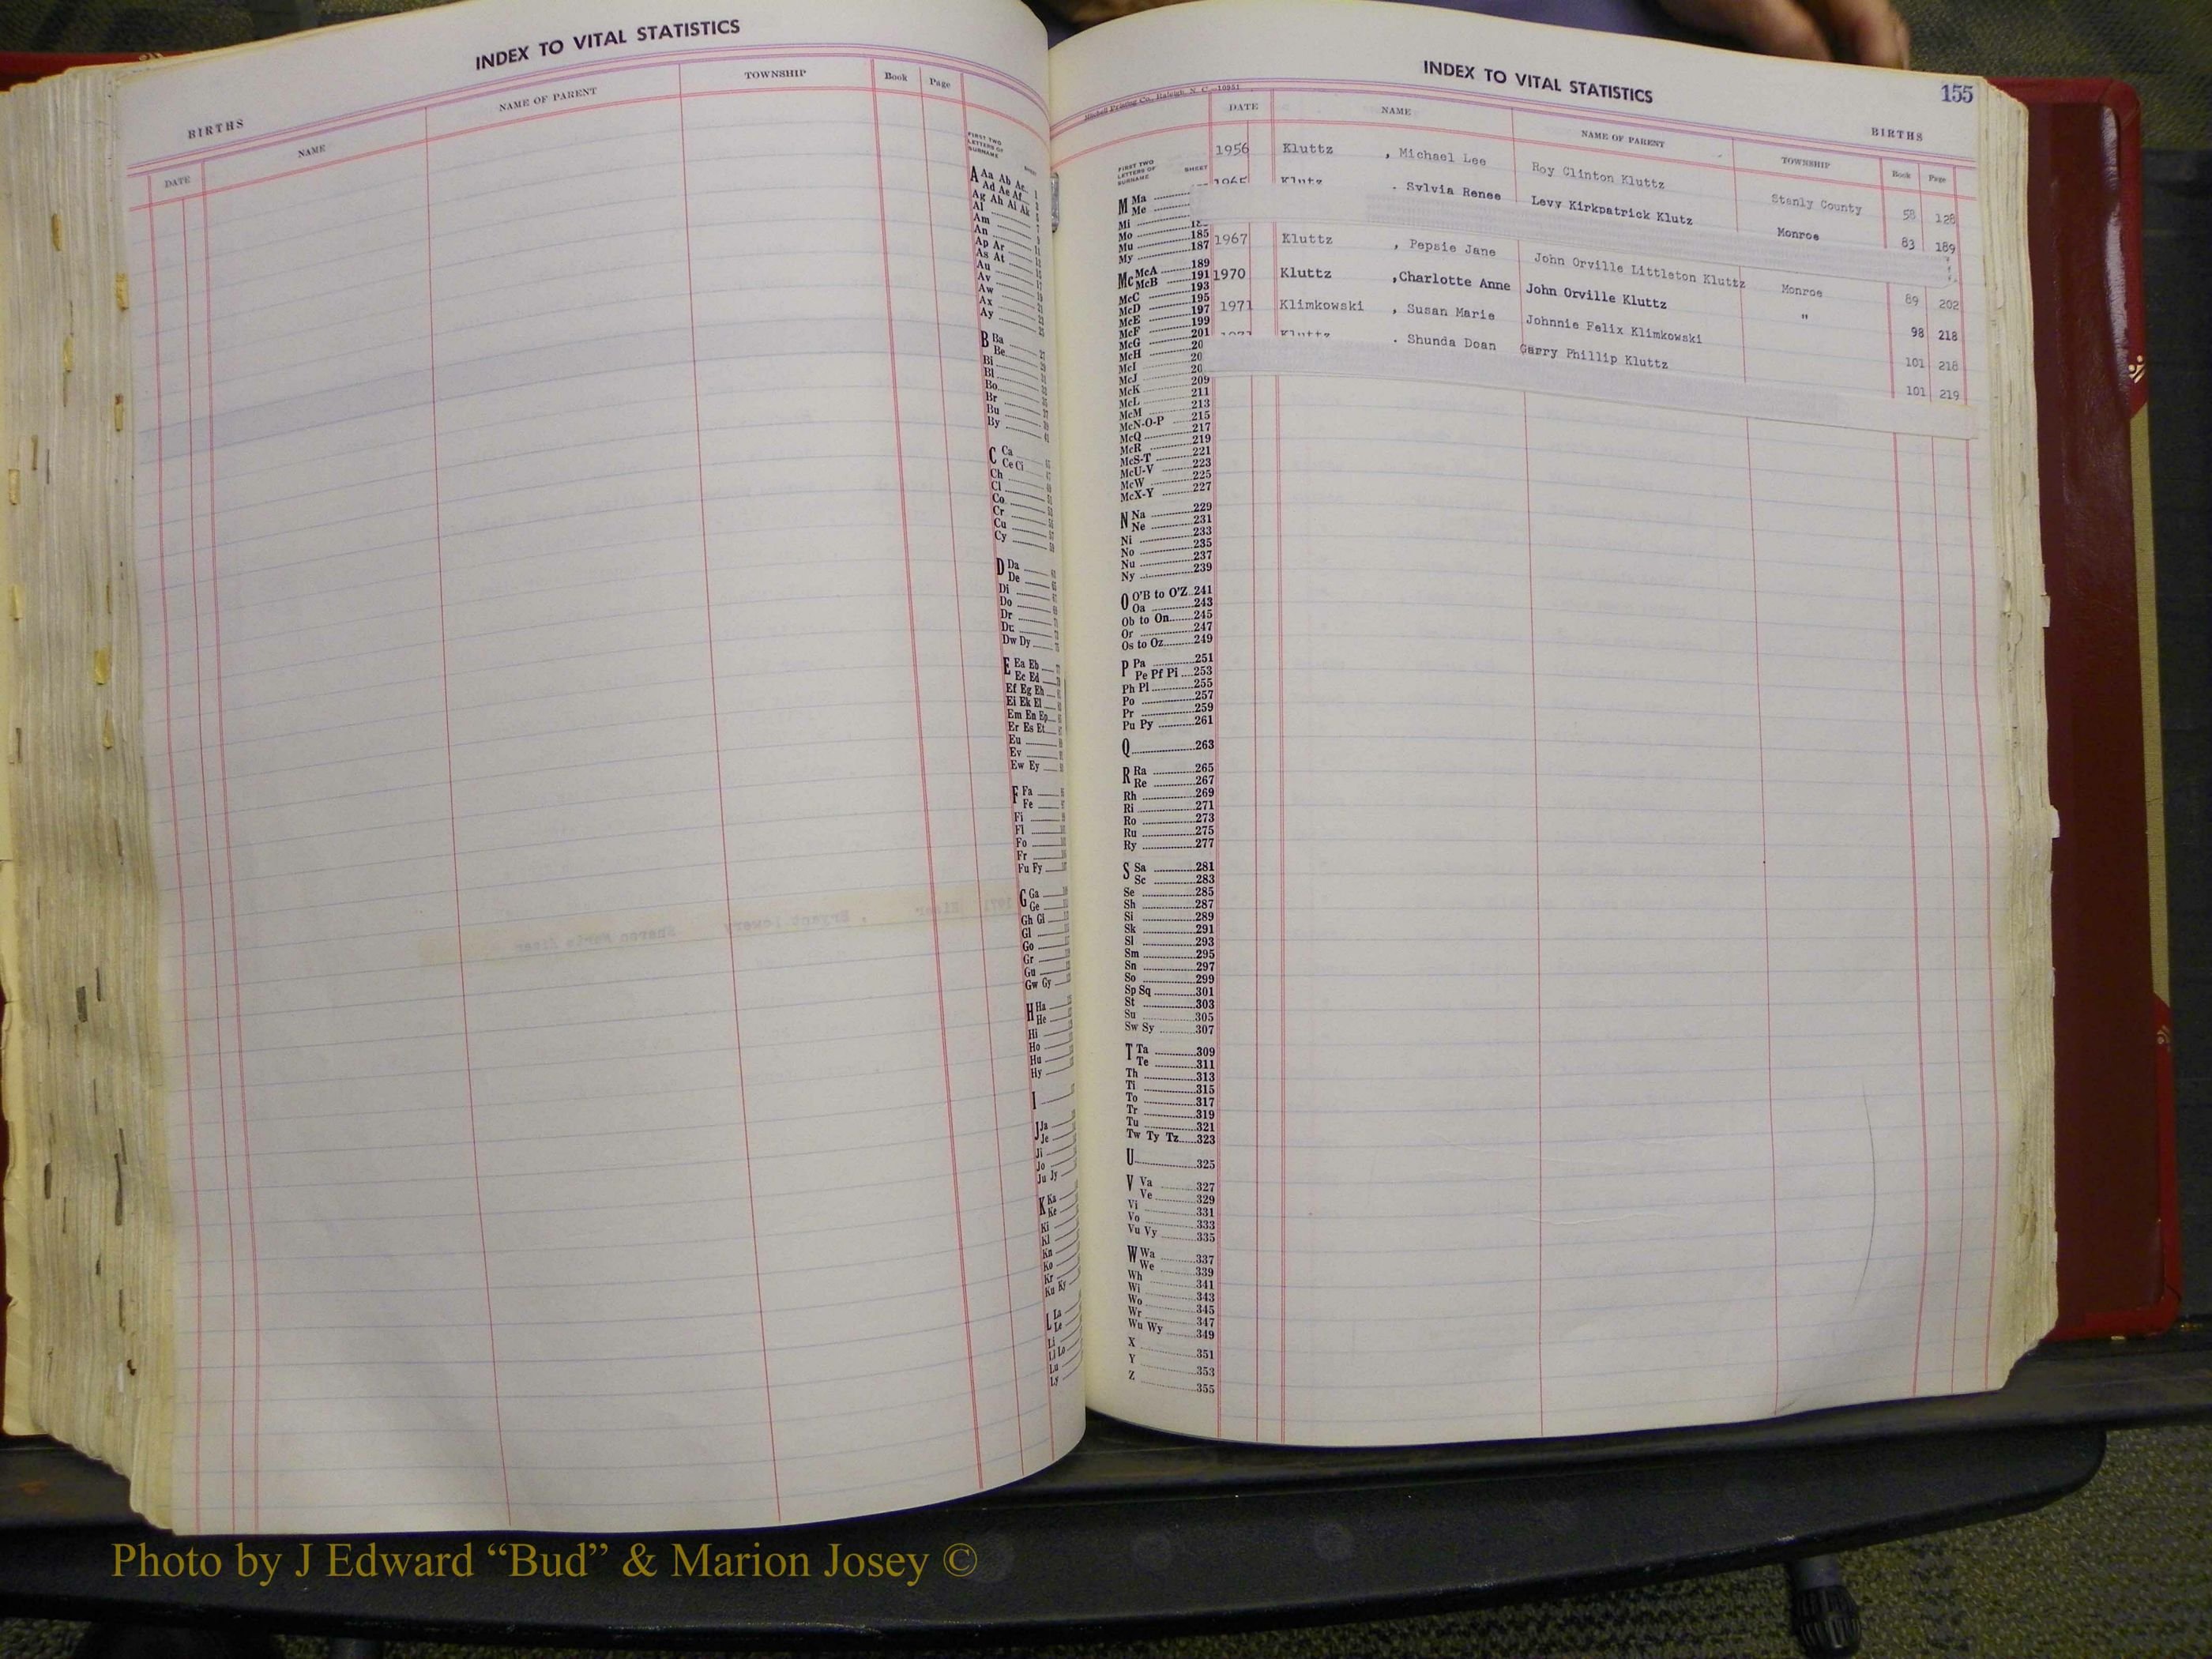 INDEX TO VITAL STATISTICS
BIRTHS
DATE NAME NAME OF PARENT TOWNSHIP Book Page
FIRST TWO LETTERS OF SURNAME
A Aa Ab Ac
Ad Ae Af
Ag Ah Ai Ak
Al
Am
An
Ap Ar
As At
Au
Av
Aw
Ax
Ay
B Ba
Be
Bi
Bl
Bo
Br
Bu
By
C Ca
Ce Ci
Ch
Cl
Co
Cr
Cu
Cy
D Da
De
Di
Do
Dr
Du
Dw Dy
E Ea Eb
Ec Ed
Ef Eg Eh
Ei Ek El
Em En Ep
Er Es Et
Eu
Ev
Ew Ey
F Fa
Fe
Fi
Fl
Fo
Fr
Fu Fy
G Ga
Ge
Gh Gi
Gl
Go
Gr
Gu
Gw Gy
H Ha
He
Hi
Ho
Hu
Hy
I
J Ja
Je
Ji
Jo
Ju Jy
K Ka
Ke
Ki
Kl
Kn
Ko
Kr
Ku Ky
L La
Le
Li
Ll Lo
Lu
Ly
INDEX TO VITAL STATISTICS
155
Mitchell Printing Co., Raleigh, N. C.—10951
BIRTHS
DATE NAME NAME OF PARENT TOWNSHIP Book Page
1956 Kluttz , Michael Lee Roy Clinton Kluttz Stanly County 58 128
1965 Klutz , Sylvia Renee Levy Kirkpatrick Klutz Monroe 83 189
1967 Kluttz , Pepsie Jane John Orville Littleton Kluttz Monroe 89 202
1970 Kluttz ,Charlotte Anne John Orville Kluttz " 98 218
1971 Klimkowski , Susan Marie Johnnie Felix Klimkowski 101 218
Kluttz , Shunda Doan Garry Phillip Kluttz 101 219
FIRST TWO LETTERS OF SURNAME SHEET
M Ma
Me
Mi
Mo 185
Mu 187
My
Mc McA 189
McB 191
McC 193
McD 195
McE 197
McF 199
McG 201
McH
McI
McJ
McK 209
McL 211
McM 213
McN-O-P 215
McQ 217
McR 219
McS-T 221
McU-V 223
McW 225
McX-Y 227
N Na 229
Ne 231
Ni 233
No 235
Nu 237
Ny 239
O O'B to O'Z 241
Oa 243
Ob to On 245
Or 247
Os to Oz 249
P Pa 251
Pe Pf Pi 253
Ph Pl 255
Po 257
Pr 259
Pu Py 261
Q 263
R Ra 265
Re 267
Rh 269
Ri 271
Ro 273
Ru 275
Ry 277
S Sa 281
Sc 283
Se 285
Sh 287
Si 289
Sk 291
Sl 293
Sm 295
Sn 297
So 299
Sp Sq 301
St 303
Su 305
Sw Sy 307
T Ta 309
Te 311
Th 313
Ti 315
To 317
Tr 319
Tu 321
Tw Ty Tz 323
U 325
V Va 327
Ve 329
Vi 331
Vo 333
Vu Vy 335
W Wa 337
We 339
Wh 341
Wi 343
Wo 345
Wr 347
Wu Wy 349
X 351
Y 353
Z 355
Photo by J Edward “Bud” & Marion Josey ©